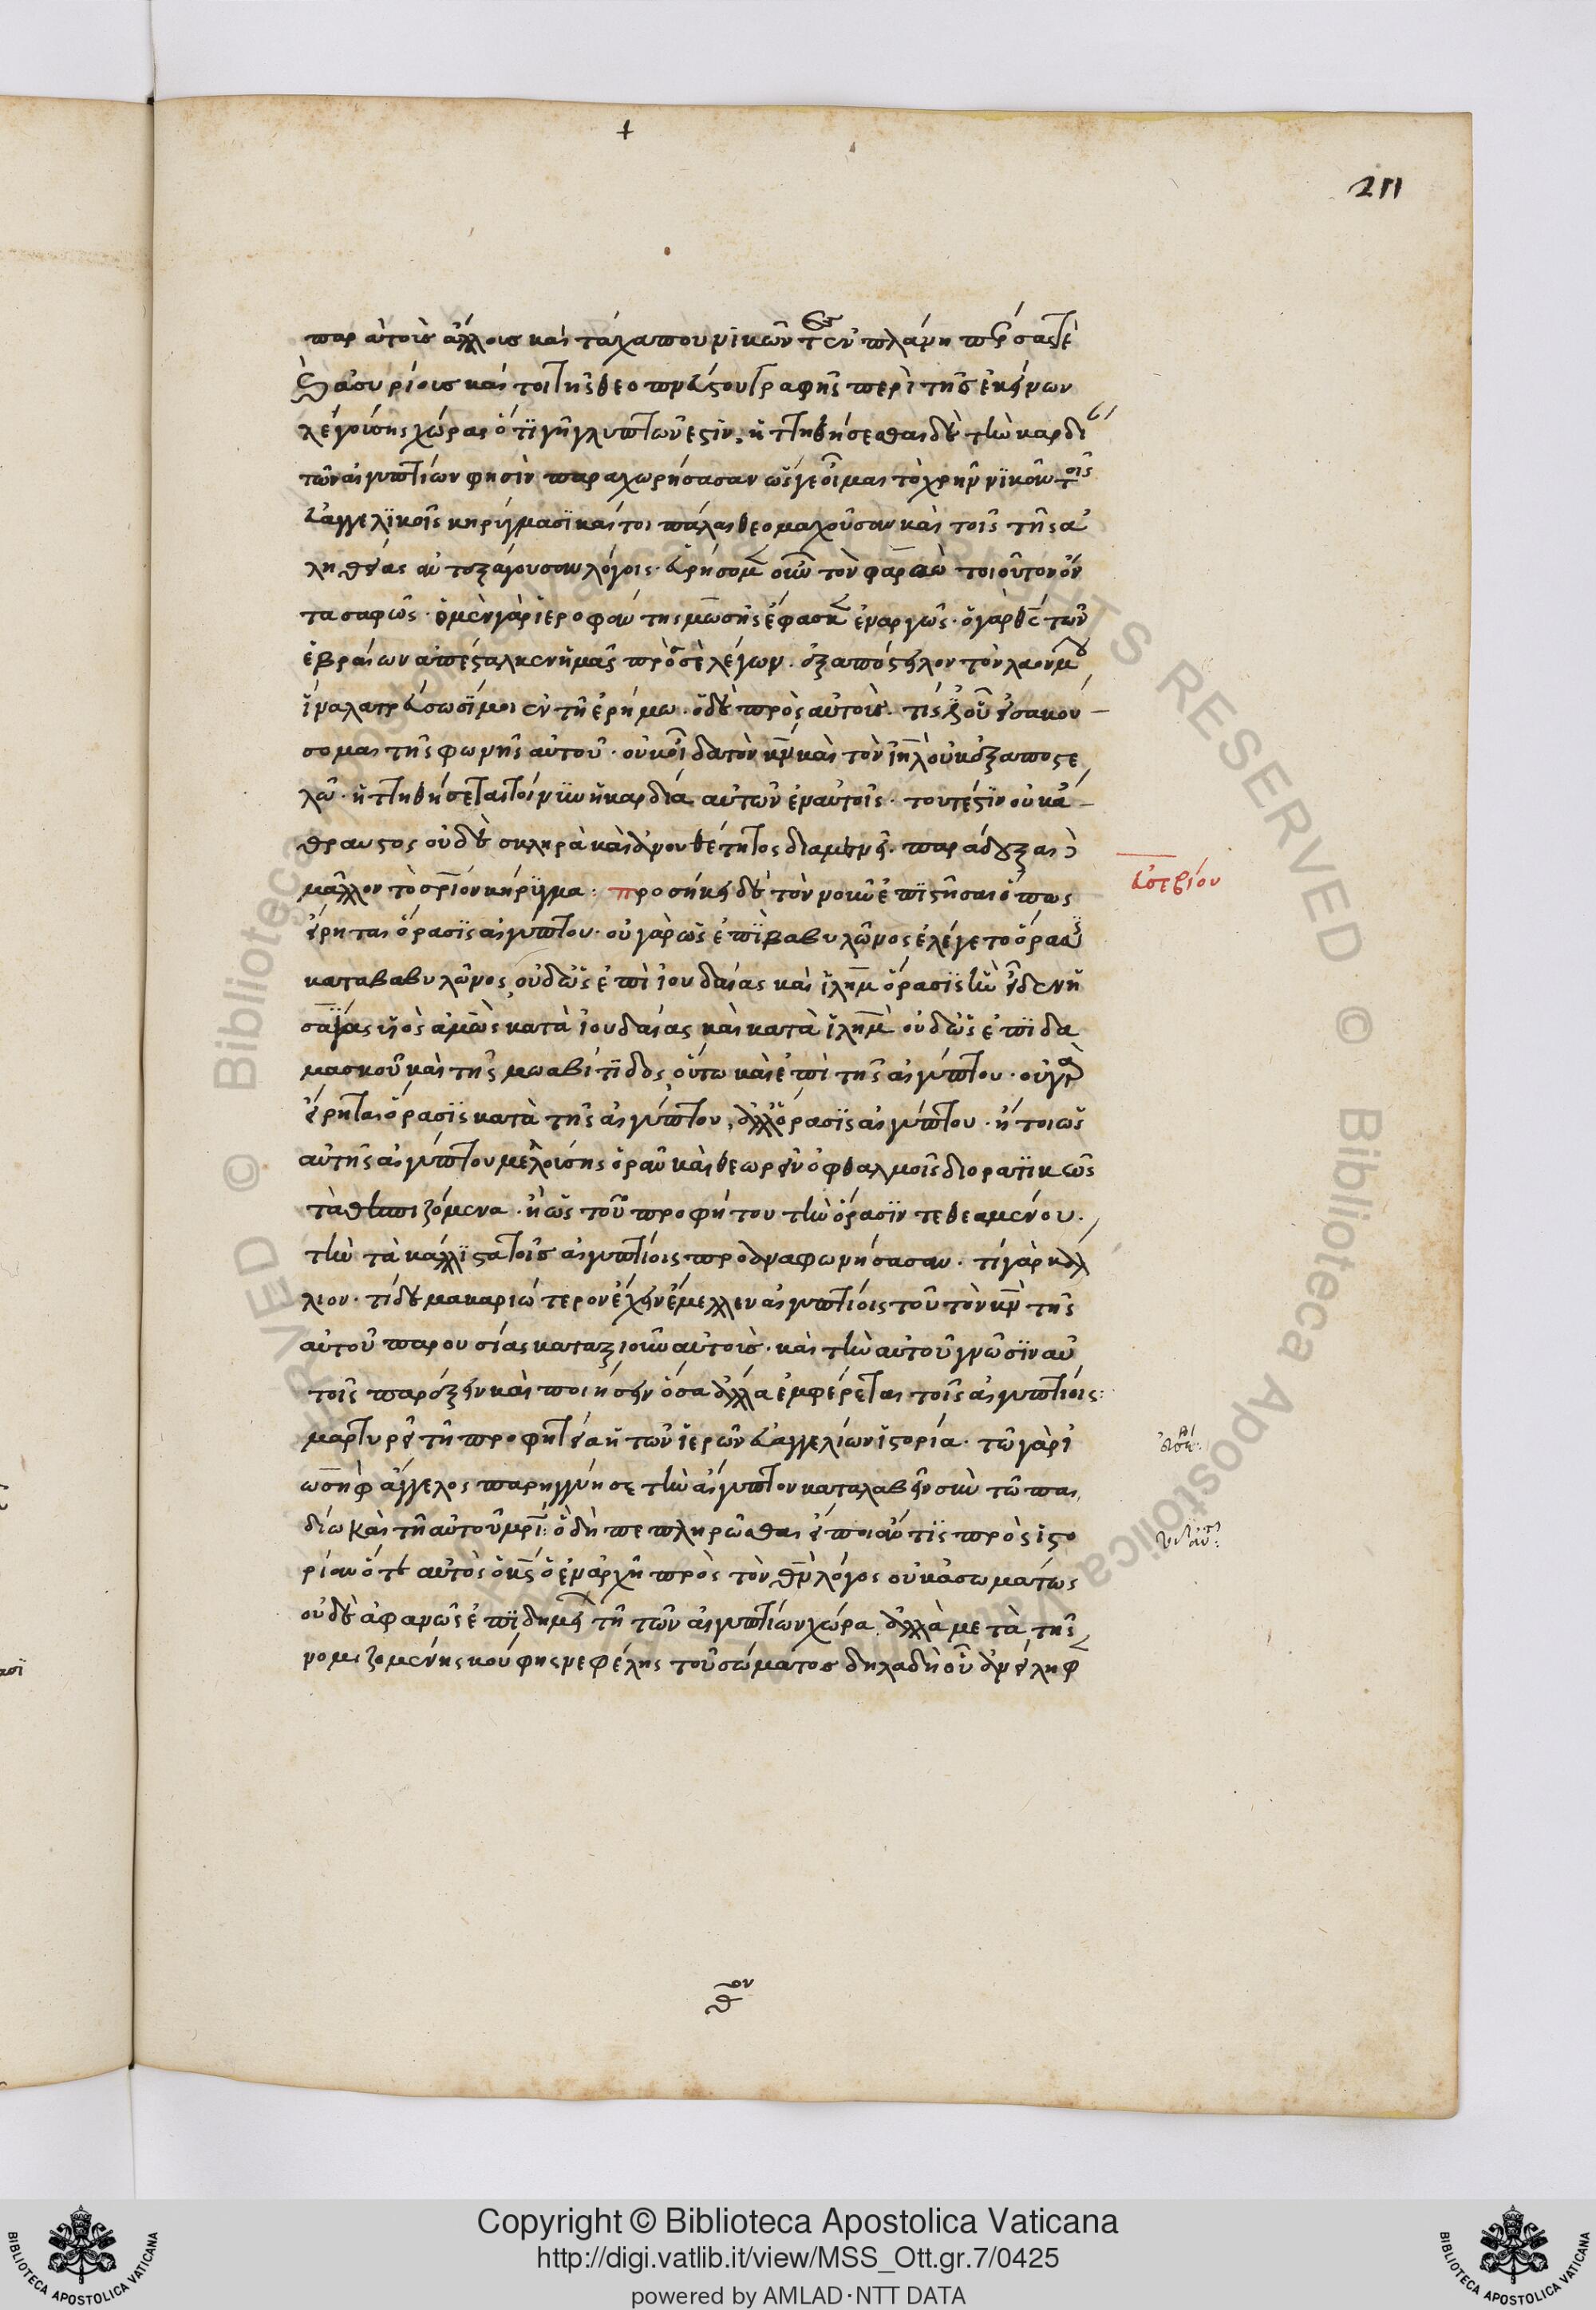 211
παρὰ τοὺς ἄλλους καὶ τάχα που νικῶντες ἐν πλάνη πέρσας τὲ
καὶ ἀσυρίους καί τοι τῆς θεοπνεύστου γραφῆς περὶ τῆς ἐκείνων
λεγούσης χώρας ὅτι γῆ γλυπτῶν ἐστὶν, ἡττηθήσεσθαι δὲ τὴν καρδίαν
τῶν αἰγυπτίων φησὶν παραχωρήσασαν ὥς γε οἶμαι τὸ χρῆν νικᾶν τοῖς
εὐαγγελικοῖς κηρύγμασι καίτοι πάλαι θεομαχοῦσαν καὶ τοῖς τῆς ἀ
ληθείας ἀντεξάγουσαν λόγοις. εὑρήσομεν οὖν τὸν φαραὼ τοιοῦτον ὄν
τα σαφῶς. ὁ μὲν γὰρ ἱεροφάντης μωσῆς ἔφασκεν ἐναργῶς. ὁ γὰρ θς τῶν
ἑβραίων ἀπέσταλκεν ἡμᾶς πρός σὲ λέγων. ἐξαπόστειλον τὸν λαόν μου
ἵνα λατρεύσωσί μοι ἐν τῇ ἐρήμω. ὁ δὲ πρὸς αὐτούς. τίς ἐστιν οὗ εἰσακού
σομαι τῆς φωνῆς αὐτοῦ. οὐκ οἶδα τὸν κν καὶ τὸν ιηλ οὐκ ἐξαποστε
λῶ. ἡττηθήσεται τοίνυν ἡ καρδία αὐτῶν ἐν αὐτοῖς. τουτέστιν οὐκ ἄ
θραυστος οὐδὲ σκληρὰ καὶ ἀνουθέτητος διαμενεῖ. παραδέξαι
μᾶλλον τὸ σριον κήρυγμα: προσήκει δὲ τὸν νοῦν ἐπιστῆσαι ὅπως
εἴρηται ὅρασις αἰγύπτου. οὐ γὰρ ὡς ἐπὶ βαβυλῶνος ἐλέγετο ὅρασις
κατὰ βαβυλῶνος οὐδ' ὡς ἐπὶ ἰουδαίας καὶ ιλημ ὅρασις ἣν εἶδεν ἡ
σαΐας υἱὸς ἀμὼς κατὰ ἰουδαίας καὶ κατὰ ιλημ οὐδ' ὡς ἐπὶ δα
μασκοῦ καὶ τῆς μωαβίτιδος, οὕτω καὶ ἐπὶ τῆς αἰγύπτου. οὐ γὰρ
εἴρηται ὅρασις κατὰ τῆς αἰγύπτου, ἀλλ' ὅρασις αἰγύπτου. ἤτοι ὡς
αὐτῆς αἰγύπτου μελλούσης ὁρᾶν καὶ θεωρεῖν ὀφθαλμοῖς διορατικῶς
τὰ θεσπιζόμενα. ἢ ὡς τοῦ προφήτου τὴν ὅρασιν τεθεαμένου.
τὴν τὰ κάλλιστα τοῖς αἰγυπτίοις προαναφωνήσασαν. τί γὰρ κάλ
λιον. τί δὲ μακαριώτερον ἔχειν ἔμελλεν αἰγυπτίοις τοῦ τὸν κν τῆς
αὐτοῦ παρουσίας καταξιοῦν αὐτούς. καὶ τὴν αὐτοῦ γνῶσιν αὐ
τοῖς παρέξειν καὶ ποιήσειν ὅσα ἄλλα ἐμφέρεται τοῖς αἰγυπτίοις:
μαρτυρεῖ τῇ προφητεία ἡ τῶν ἱερῶν εὐαγγελίων ἱστορία. τῶ γὰρ ἰ
ωσὴφ ἄγγελος παρηγγύησε τὴν αἴγυπτον καταλαβεῖν σὺν τῶ παι
δίω καὶ τῇ αὐτοῦ μρι: ὃ δὴ πεπληρῶσθαι εἴποι ἄν τις πρὸς ἱστο
ρίαν ὅτε αὐτὸς ὁ κς ὁ ἐν ἀρχῇ πρὸς τὸν θν λόγος οὐκ ἀσωμάτως
οὐδὲ ἀφανῶς ἐπιδημεῖ τῇ τῶν αἰγυπτίων χώρα, ἀλλὰ μετὰ τῆς
νομιζομένης κούφης νεφέλης τοῦ σώματος δηλαδὴ οὗ ἀνείληφε
εὐσεβίου
Copyright © Biblioteca Apostolica Vaticana
http://digi.vatlib.it/view/MSS_Ott.gr.7/0425
powered by AMLAD·NTT DATA